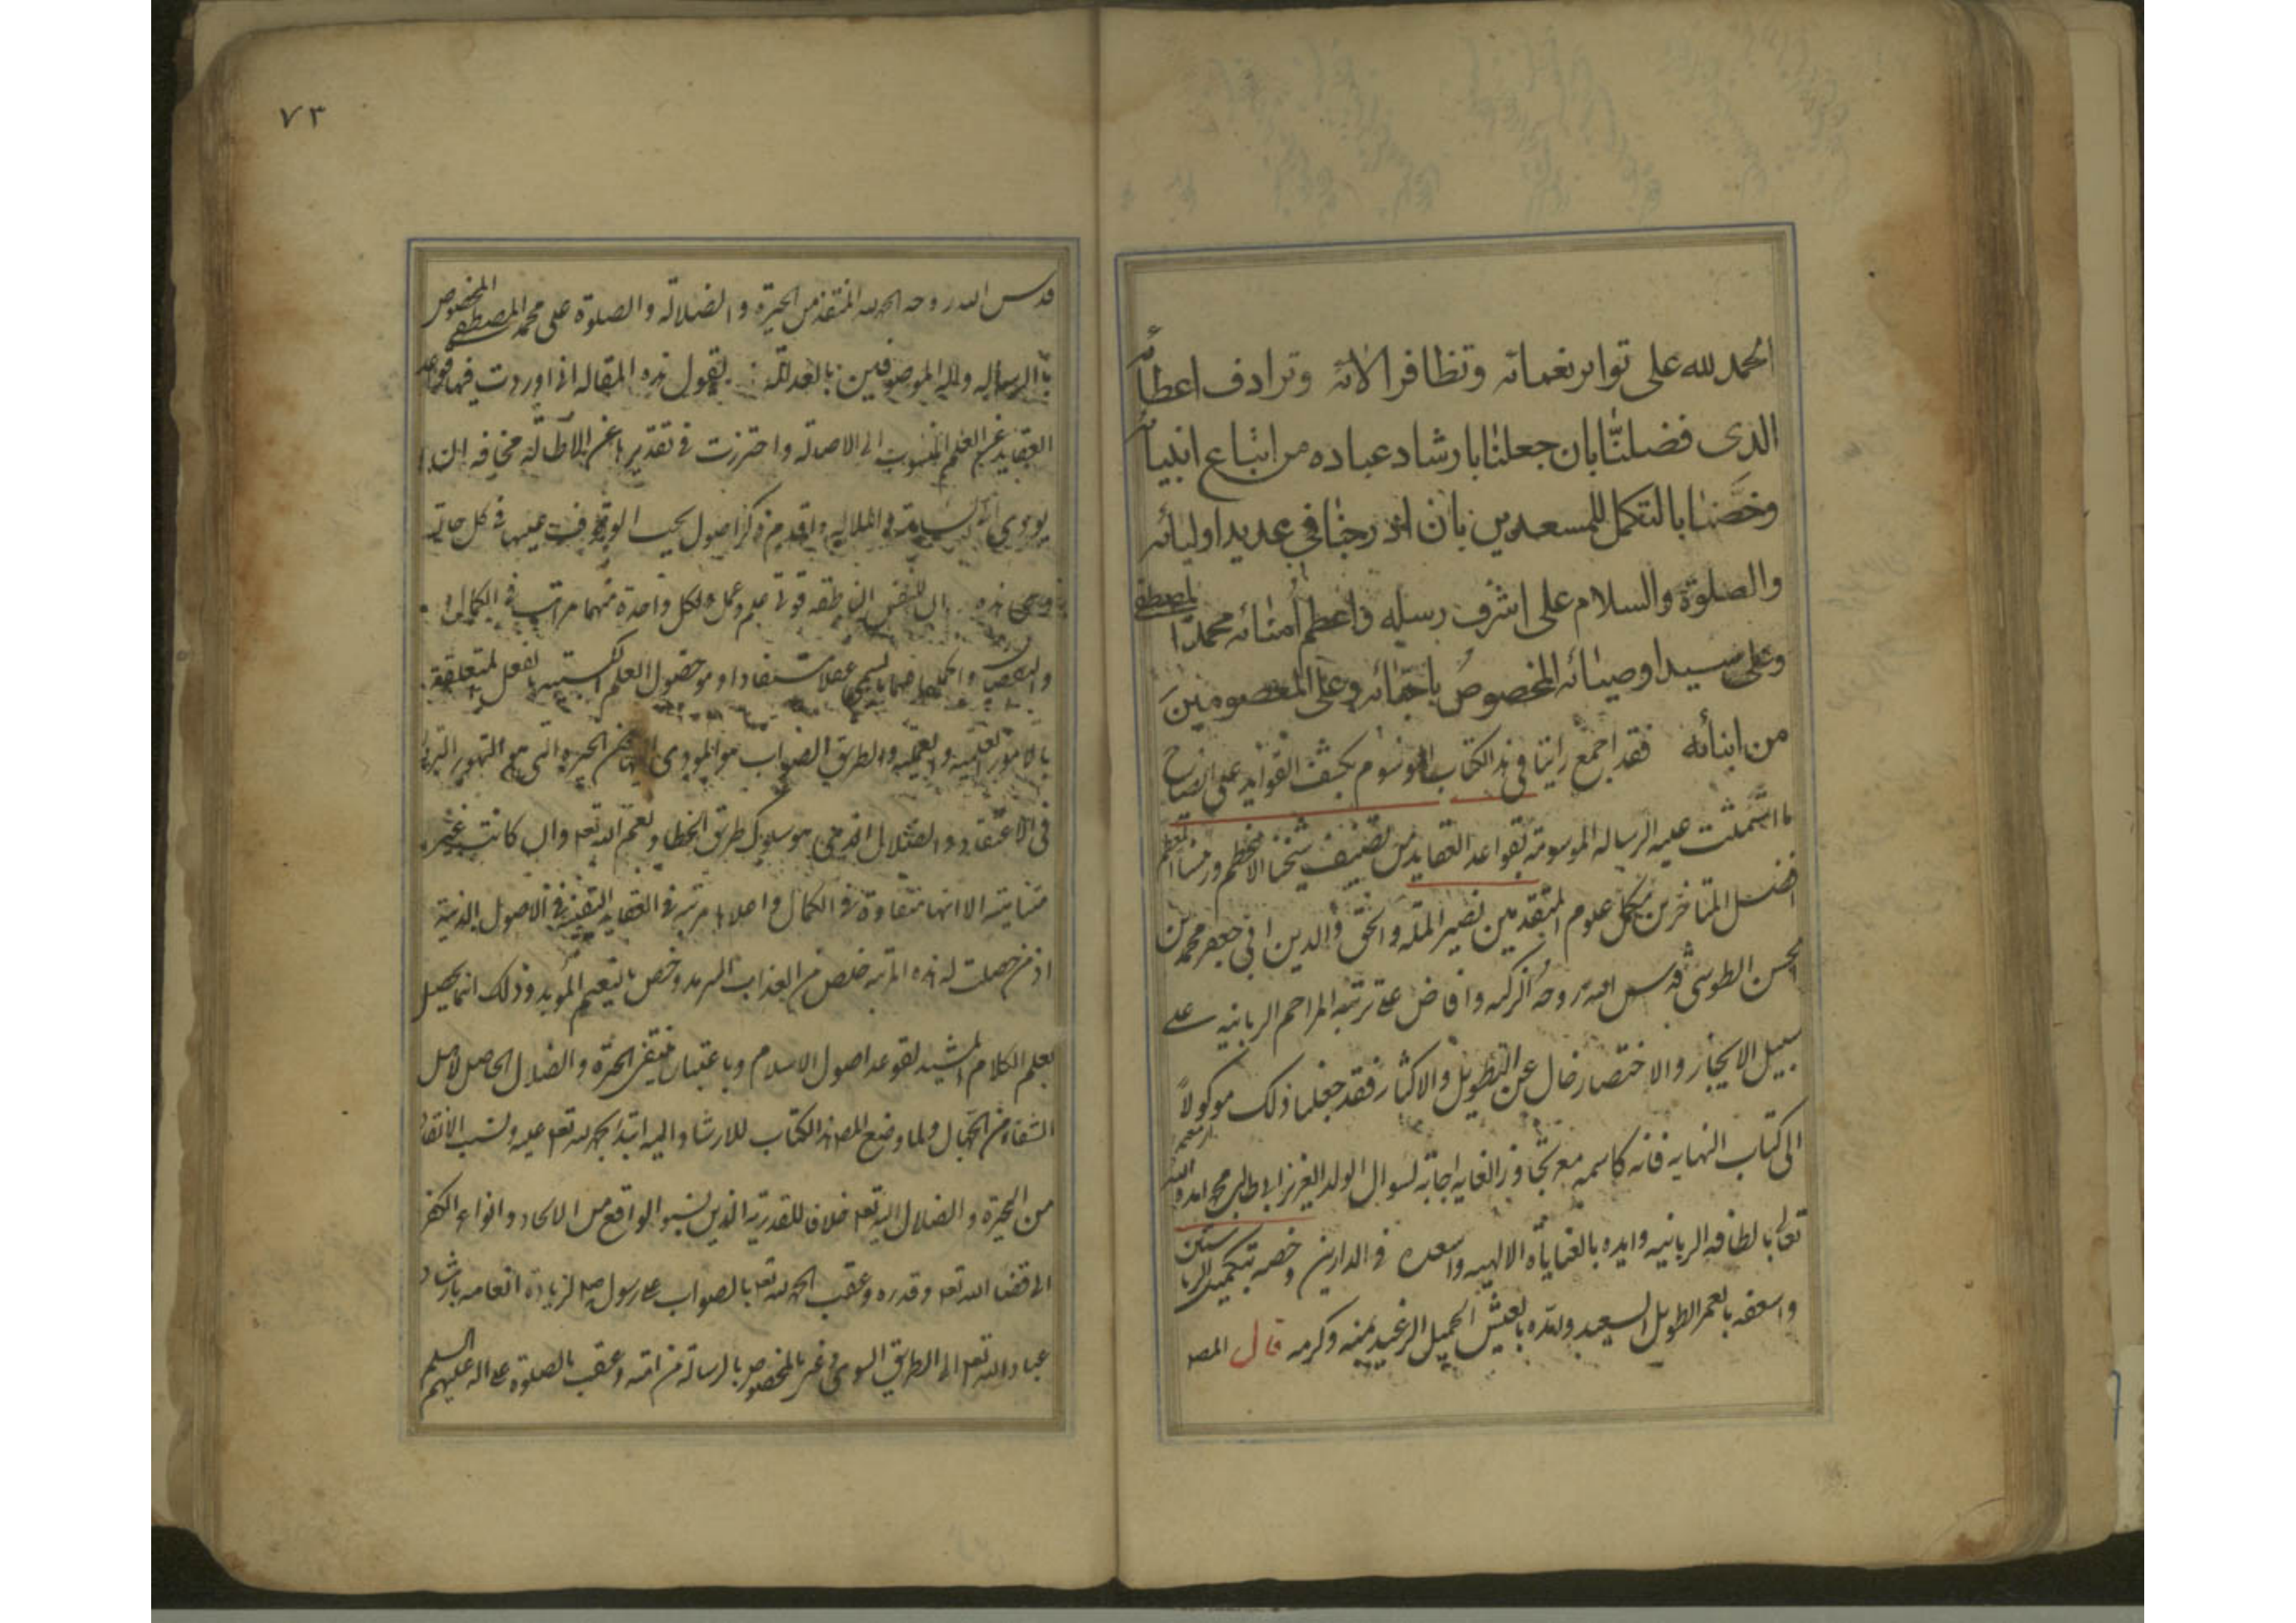 الحمد لله على تواتر نعمائه وتظافر الائه وترادف اعطائه
الذى فضلنا بان جعلنا بارشاد عباده من اتباع انبيائه
وخصنا بالتكمل للمسعدين بان ادرجنا فى عديد اوليائه
والصلوة والسلام على اشرف رسله واعظم امنائه محمد المصطفى
وعلى سيد اوصيائه المخصوص باخائه وعلى المعصومين
من ابنائه فقد اجمع راينا فى هذا الكتاب الموسوم بكشف الفوايد على ايضاح
ما اشتملت عليه الرساله الموسومة بقواعد العقايد من تصنيف شيخنا الاعظم ورئيسنا المعظم
افضل المتاخرين مكمل علوم المتقدمين نصير الملة والحق والدين ابى جعفر محمد بن
الحسن الطوسى قدس الله روحه الزكيه وافاض على تربته المراحم الربانيه على
سبيل الايجاز والاختصار خال عن التطويل والاكثار فقد جعلنا ذلك موكولا
الى كتاب النهايه فانه كاسمه مع تجاوز الغايه اجابة لسوال الولد العزيز محمد امده الله
تعالى بالطافه الربانيه وايده بالعنايات الالهيه واسعده فى الدارين وخصه بتكميل الرياستين
واسعفه بالعمر الطويل السعيد ولذذه بالعيش الجميل الرغيد بمنه وكرمه قال المصـ
٧٣
قدس الله روحه الحمد لله المنقذ من الحيرة والضلالة والصلوة على محمد المصطفى المخصوص
بالرساله واله الموصوفين بالعدالة يقول هذه المقاله انى اوردت فيها قواعد
العقايد من العلم المنسوب الى الاصاله واحترزت فى تقديرها عن الاطالة مخافه ان
يودى الى السامة فى الملاله ولنقدم ذكر اصول يجب الوقوف عليها فى كل حاله
وهى هذه ان للنفس الناطقه قوتى علم وعمل ولكل واحدة منهما مراتب فى الكمال
والنقص عقلا مستفادا وهو حصول العلم بالفعل المتعلقة
بالامور والطريق الصواب هو المودى من الحيره التى هى التهور
فى الاعتقاد والضلال الذى هو سلوك طريق الخطا ونعم الله تعه وان كانت غير
متناهيه الا انها متفاوتة فى الكمال واعلاها مرتبه فى العقايد اليقينية فى الاصول الدينية
اذ من حصلت له هذه المرتبه خلص من العذاب السرمد وخص بالنعيم المويد وذلك انما يحصل
بعلم الكلام المشيد لقواعد اصول الاسلام وباعتباره ينتفى الحيرة والضلال الحاصل لاهل
الشقاء من الجهال ولما وضع المصـ هذا الكتاب للارشاد اليه ابتدا بحمد لله تعه عليه ونسب الانقاذ
من الحيرة والضلال اليه تعه خلافا للقدرية الذين نسبوا الواقع من الالحاد وانواع الكفر
الى قضا الله تعه وقدره وعقب الحمد لله تعه بالصواب على رسوله صلعم لزيادة انعامه بارشاد
عباد الله تعه الى الطريق السوى المخصوص بالرسالة من امته وعقب بالصلوة على اله عليهم السلم